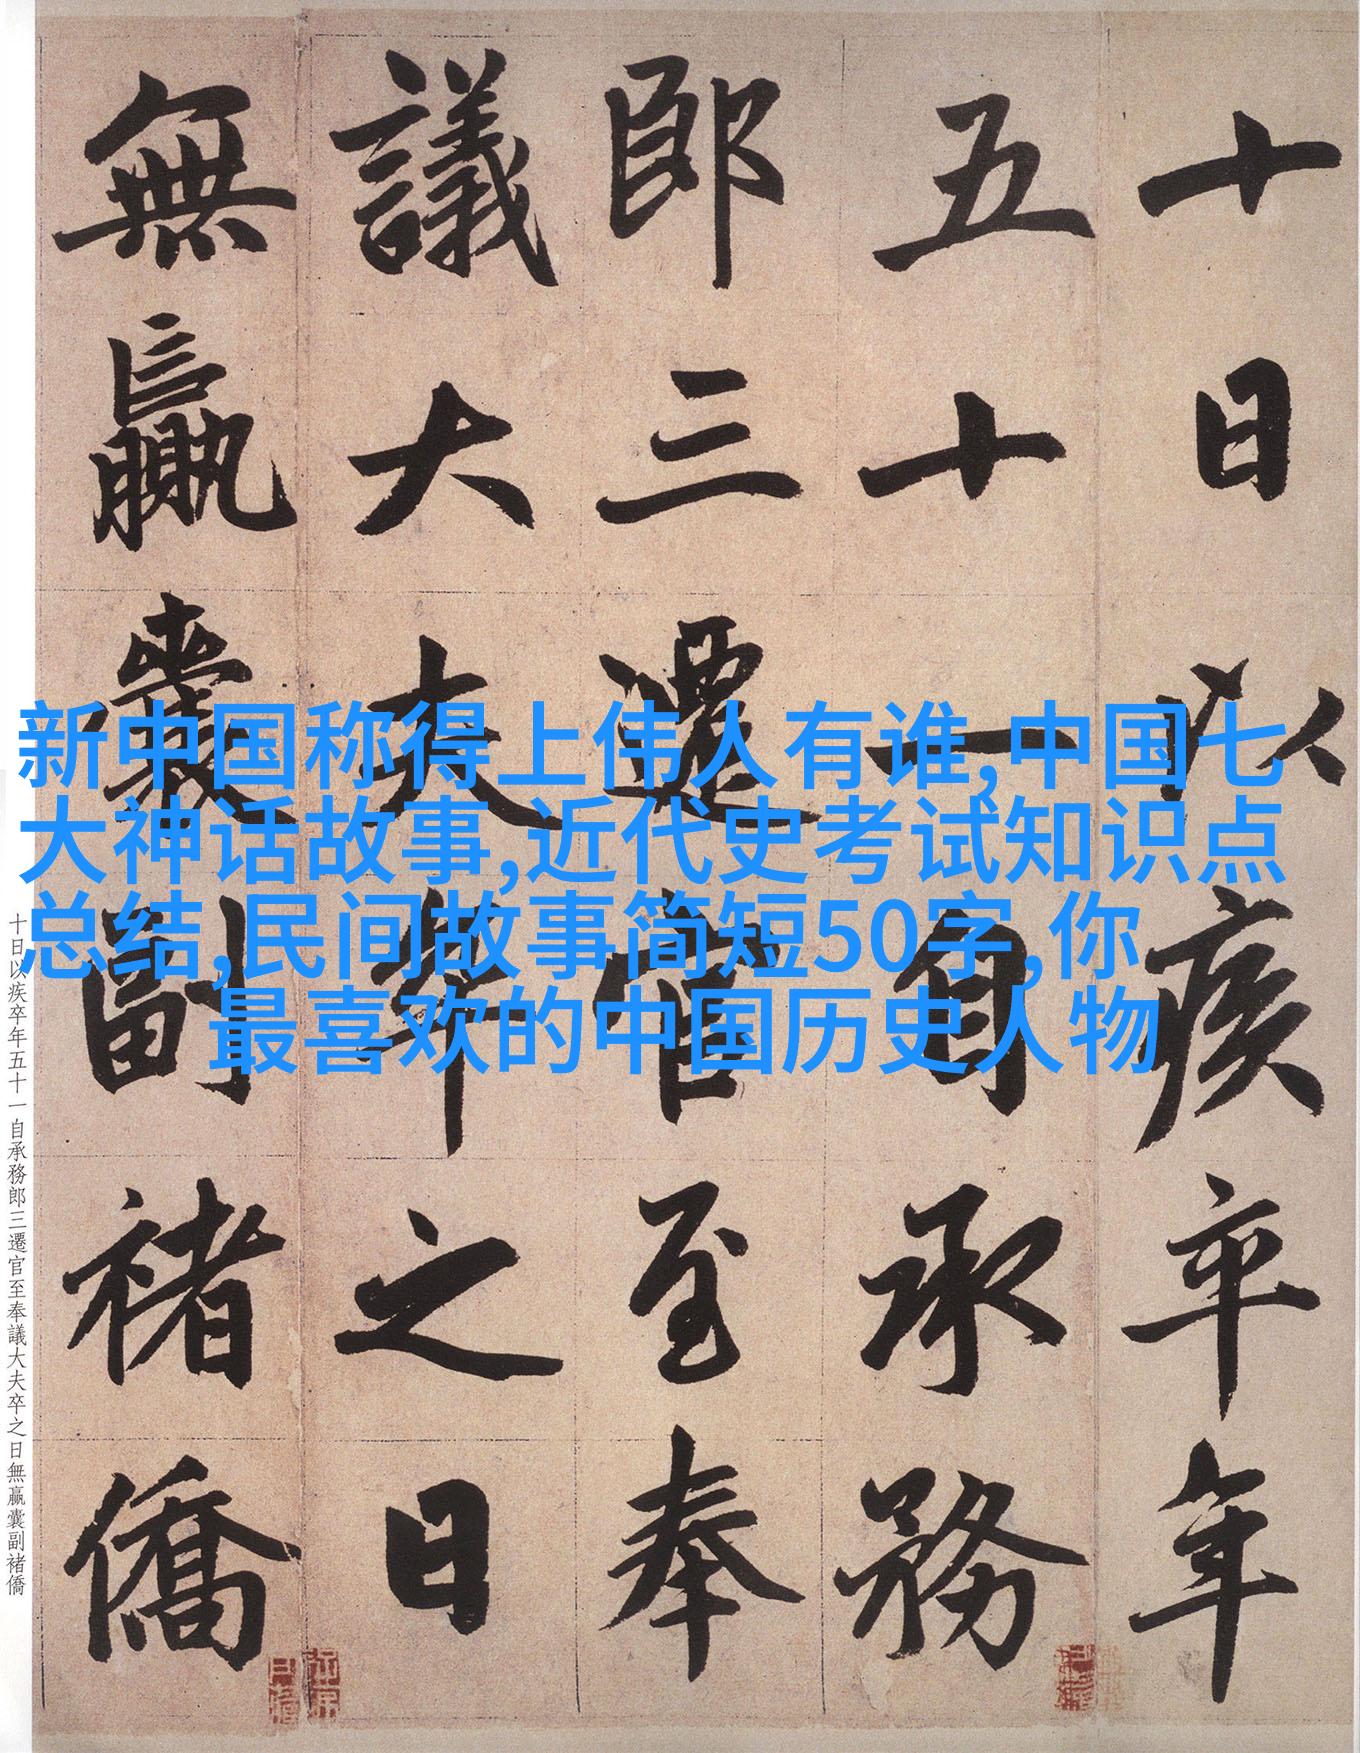 十日以疾卒年
五十一自承務
郎三遷官至奉
議大夫卒之日
無贏囊副褚僑
新中国称得上伟人有谁,中国七
大神话故事,近代史考试知识点
总结,民间故事简短50字,你
最喜欢的中国历史人物
十日以疾卒年五十一自承務郎三遷官至奉議大夫卒之日無贏囊副褚僑